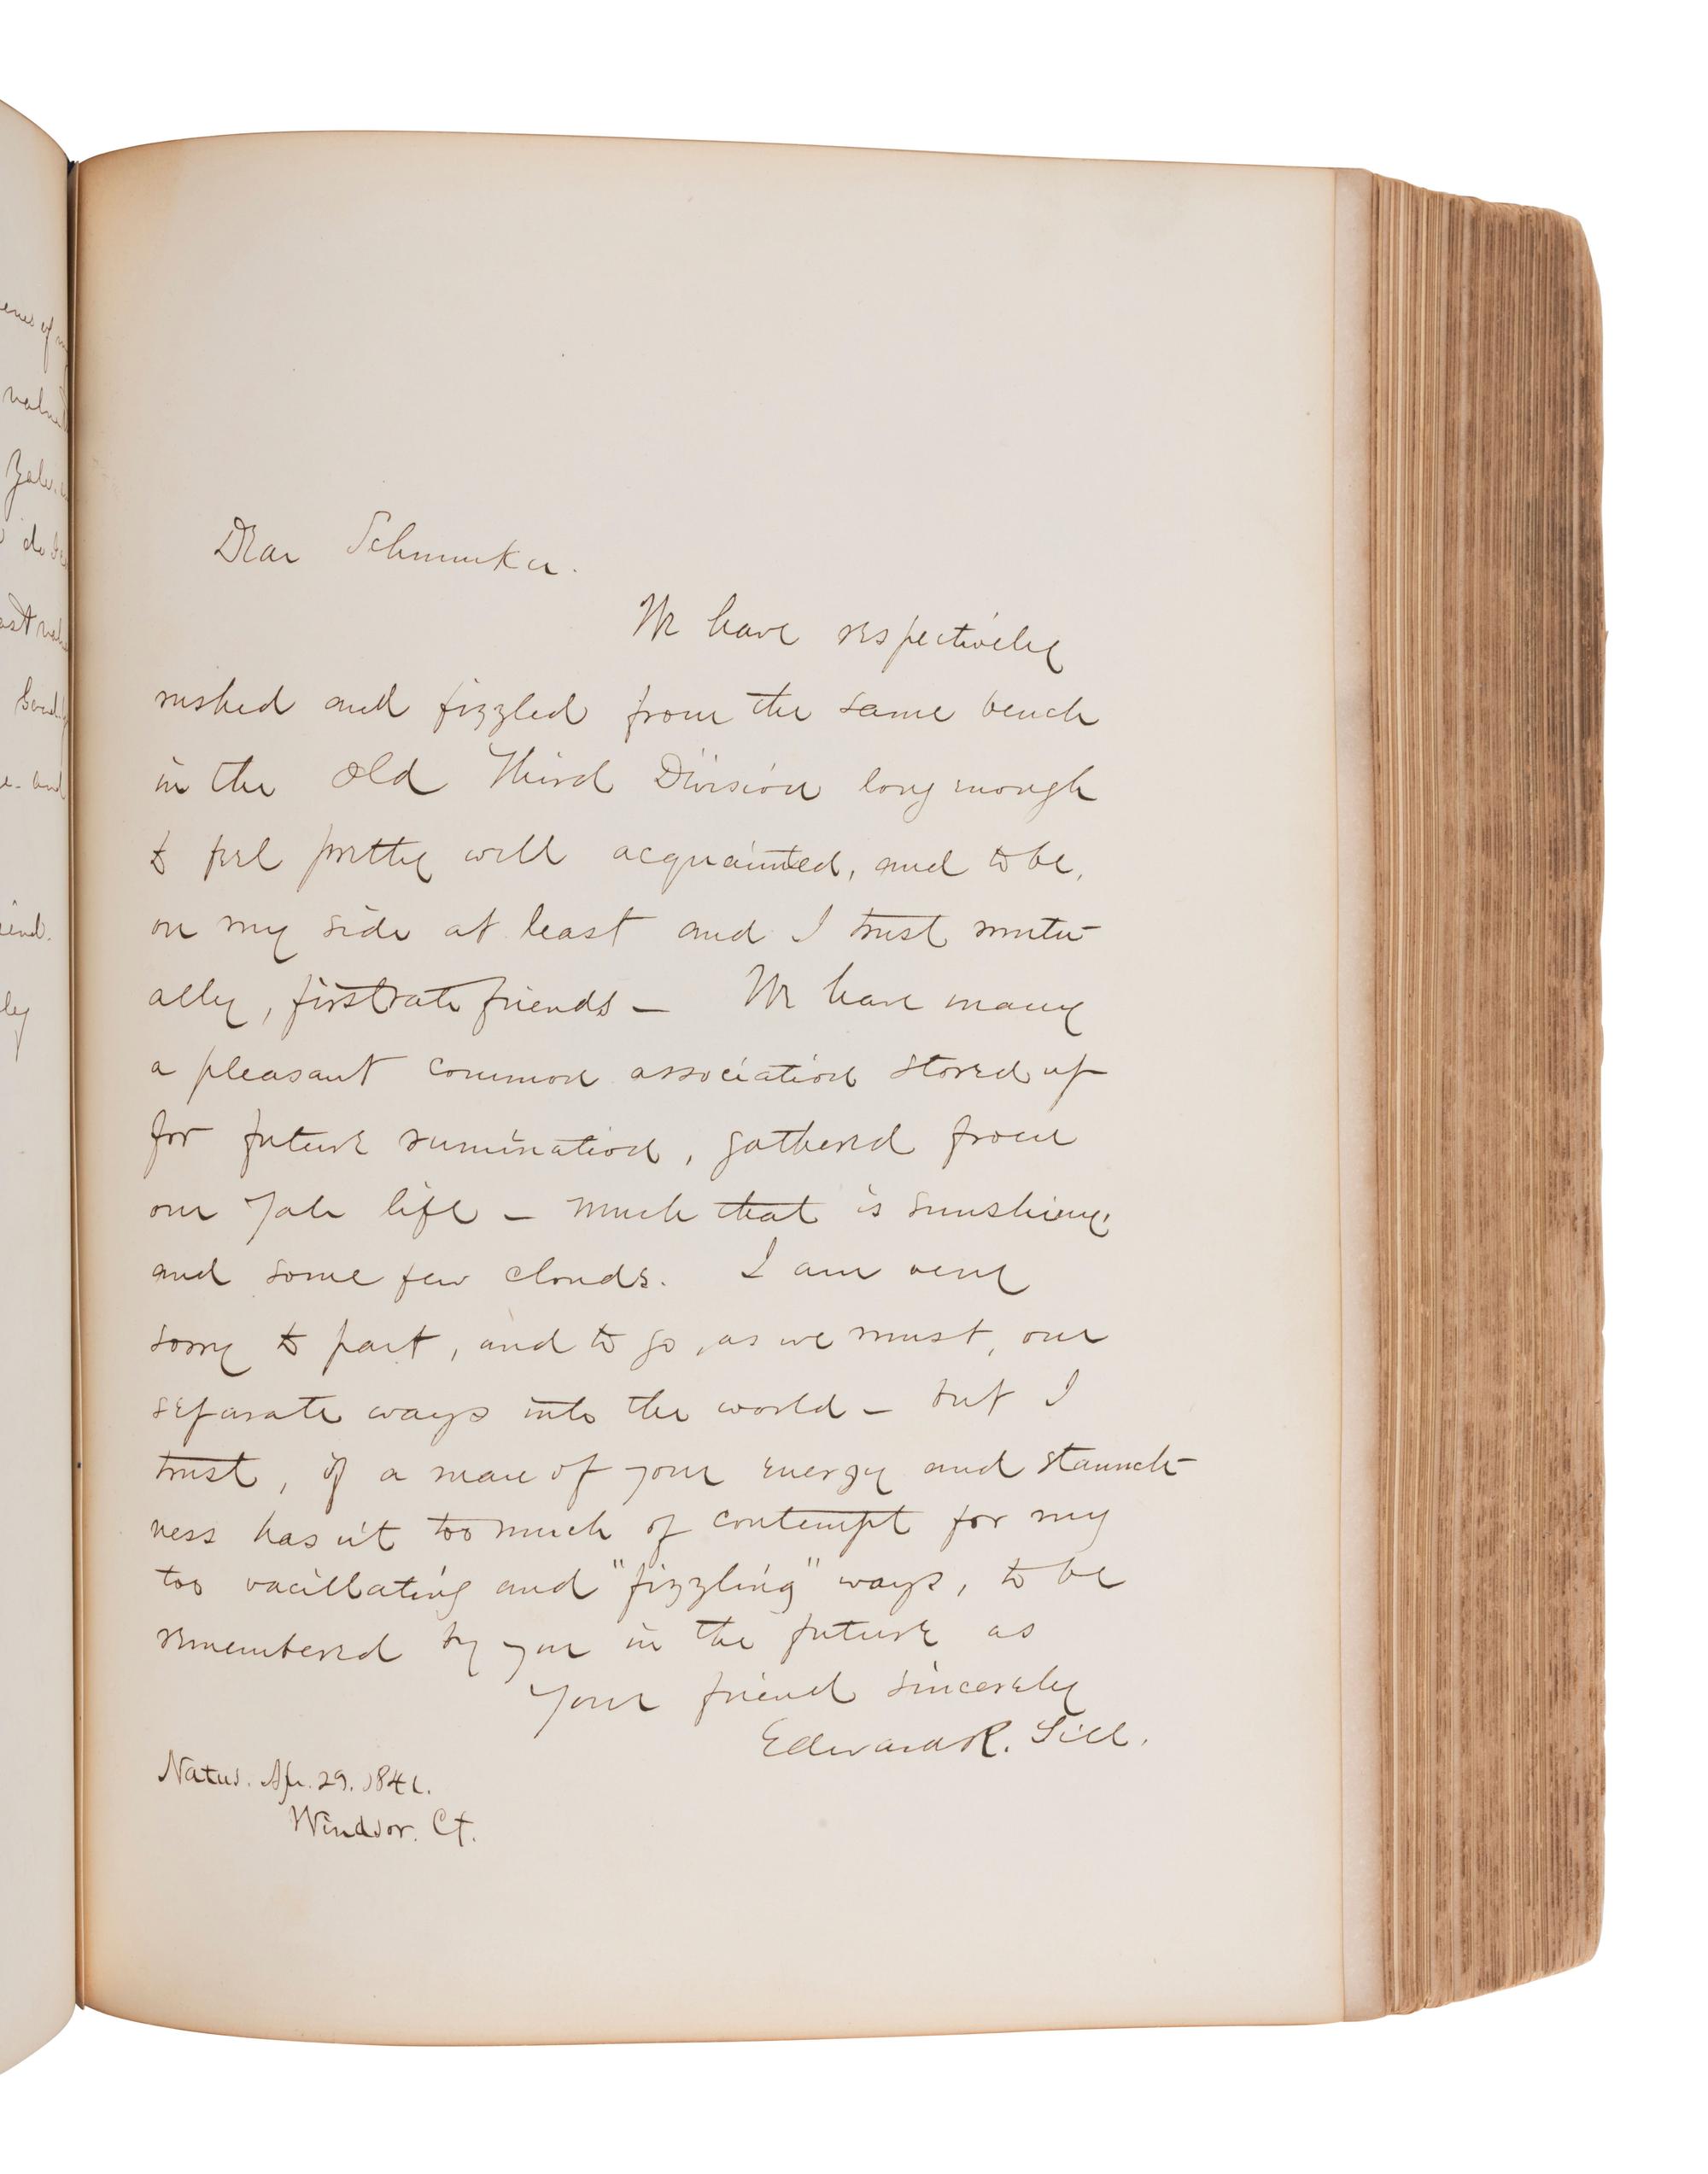 Dear Schmucker.
We have respectively
rushed and fizzled from the same bench
in the old Third Division long enough
to feel pretty well acquainted, and to be,
on my side at least and I trust mutu-
ally, first rate friends — We have many
a pleasant common association stored up
for future rumination, gathered from
our Yale life — much that is sunshiny,
and some few clouds. I am very
sorry to part, and to go, as we must, our
separate ways into the world — but I
trust, if a man of your energy and staunch-
ness hasn't too much of contempt for my
too vacillating and "fizzling" ways, to be
remembered by you in the future as
Your friend sincerely
Edward R. Sill.
Natus. Apr. 29. 1841.
Windsor. Ct.